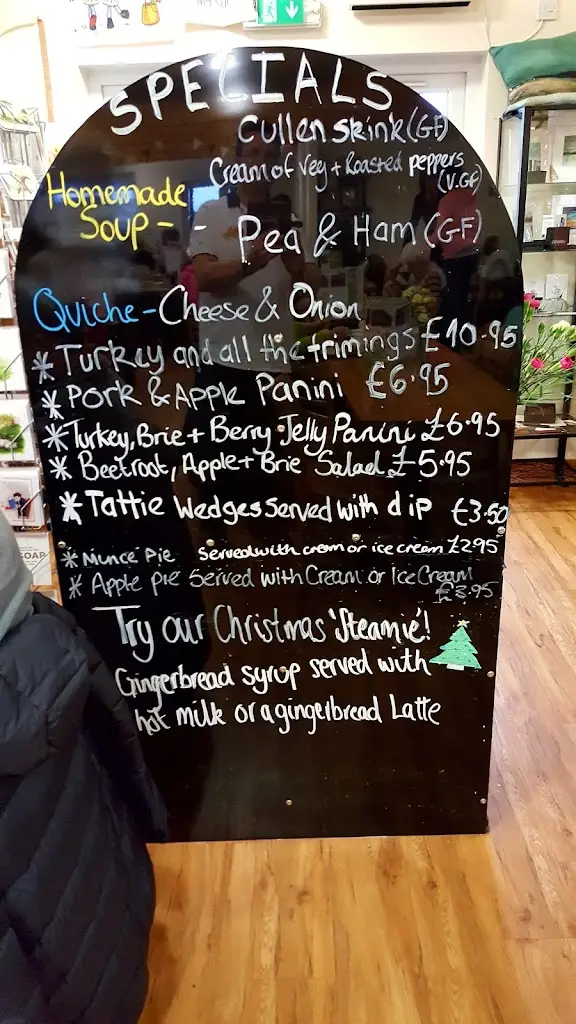 SPECIALS
Cullen skink (GF)
Cream of Veg + Roasted peppers
(V.GF)
Homemade
Soup - -
Pea & Ham (GF)
Quiche - Cheese & Onion
* Turkey and all the trimings £10.95
* Pork & Apple Panini £6.95
* Turkey, Brie + Berry Jelly Panini £6.95
* Beetroot, Apple + Brie Salad £5.95
* Tattie Wedges Served with dip £3.50
* Mince Pie Served with cream or ice cream £2.95
* Apple pie Served with Cream or Ice Cream
£3.95
Try our Christmas 'Steamie'!
Gingerbread syrup served with
hot milk or a gingerbread Latte
SOAP